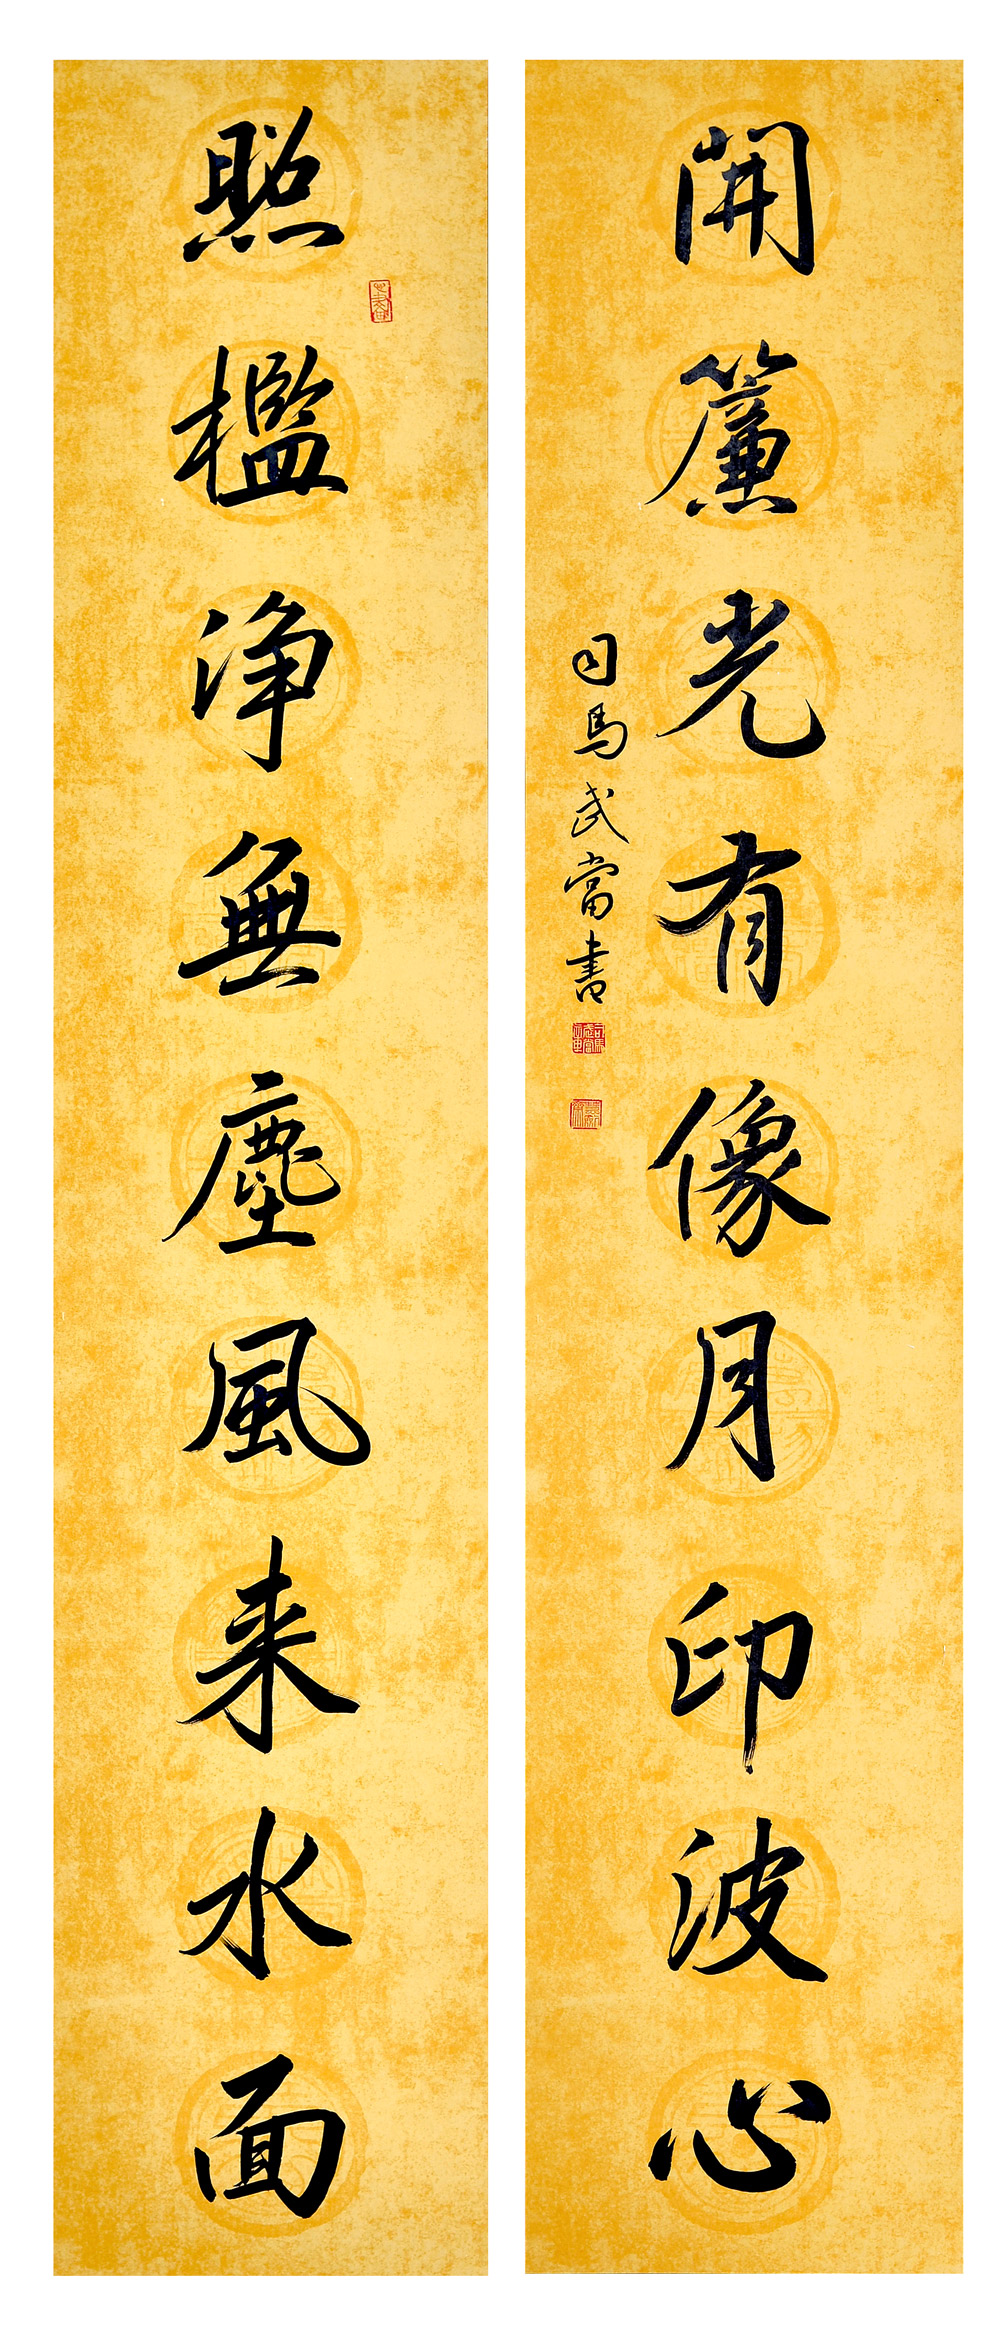 開簾光有像月印波心
司馬武當書
照檻淨無塵風来水面